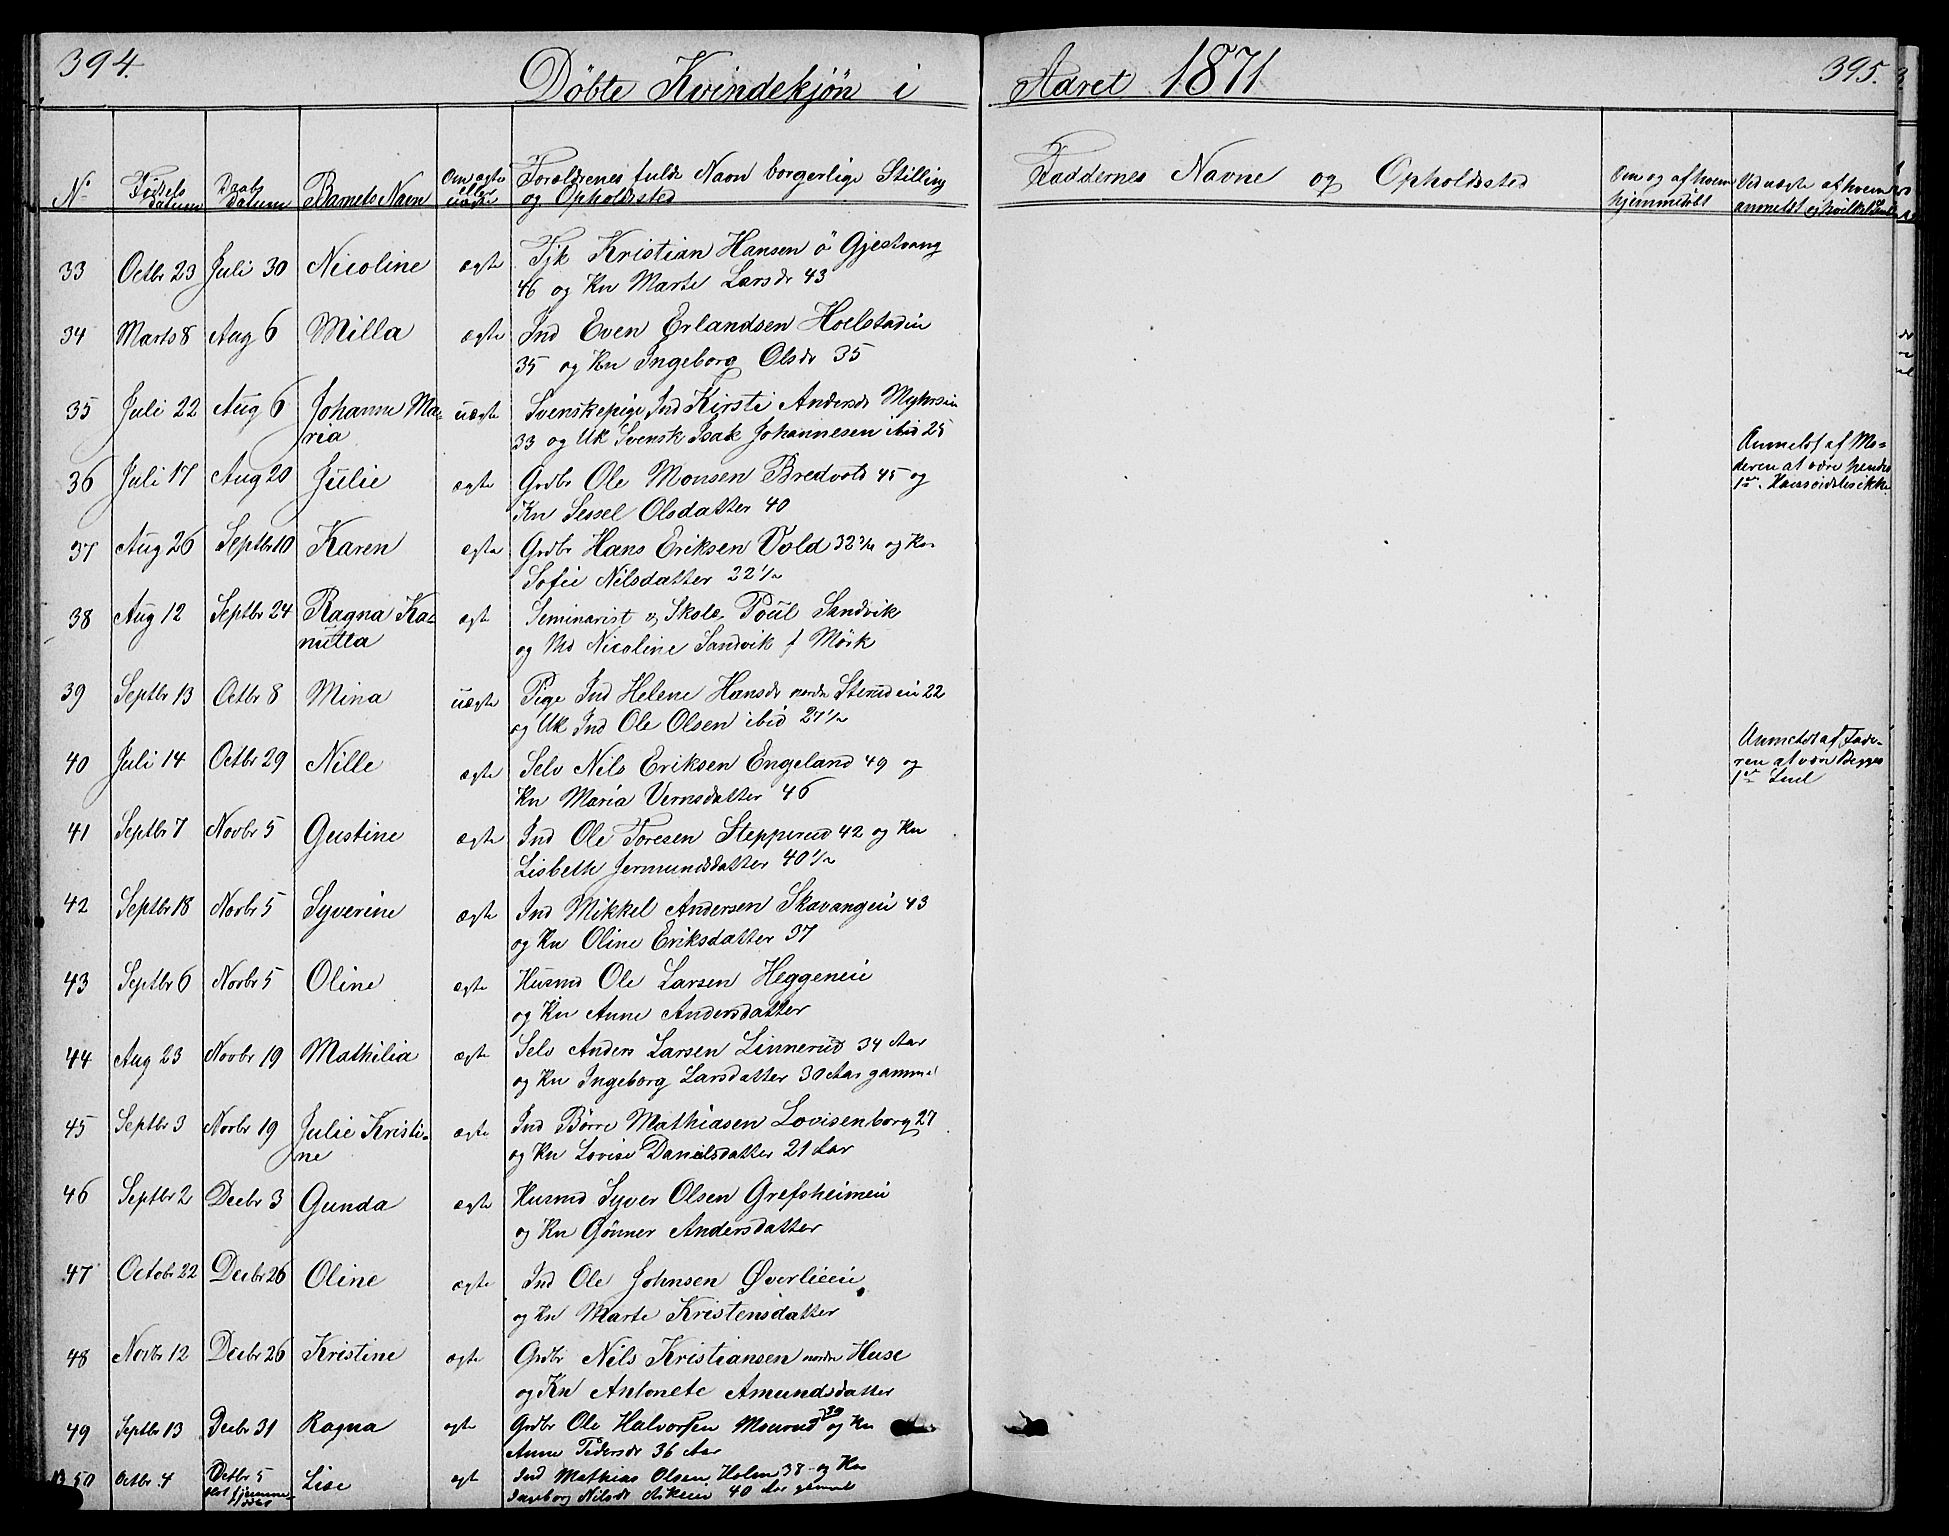 394.
Döbte Kvindekjön i
Aaret 1871
395.
No
Födsels datum
Daabs datum
Barnets Navn
Om ægte eller uægte
Forældrenes fulde Navn borgerlige Stilling og Opholdssted
Faddernes Navne og Opholdssted
Om og af hvem hjemmedøbt
Ved uægte af hvem anmeldt
33 Octbr 23 Juli 30 Nicoline ægte Tjk Kristian Hansen ö Gjestvang
46 og Kn Marte Larsdr 43
34 Marts 8 Aug 6 Milla ægte Ind Even Erlandsen Hoelstadeie
35 og Kn Ingeborg Olsdr 35
35 Juli 22 Aug 6 Johanne Ma- uægte Svenskepige Ind Kirsti Andersdr
ria 33 og Uk Svensk Isak Johannesen ibid 25
Anmeldt af Mo-
deren at være hendes
1ste
36 Juli 17 Aug 20 Julie ægte Grdbr Ole Monsen Bredvold 45 og
Kn Sessel Olsdatter 40
37 Aug 26 Septbr 10 Karen ægte Grdbr Hans Eriksen Vold 32 3/4 og Kn
Sofie Nilsdatter 22 1/2
38 Aug 12 Septbr 24 Ragna Ka- ægt Seminarist og Skolel Poul Sandvik
nutta og Md Nicoline Sandvik f Mörk
39 Septbr 13 Octbr 8 Mina uægte Pige Ind Helene Hansdr nordre Sterudeie 22
og Uk Ind Ole Olsen ibid 27 1/2
Anmeldt af Fade-
ren at være Begges
1ste Leiel
40 Juli 14 Octbr 29 Nille ægte Selv Nils Eriksen Engeland 49 og
Kn Maria Vernsdatter 46
41 Septbr 7 Novbr 5 Gustine ægte Ind Ole Toresen Stepperud 42 og Kn
Lisbeth Jermundsdatter 40 1/2
42 Septbr 18 Novbr 5 Syverine ægte Ind Mikkel Andersen Skavangeie 43
og Kn Oline Eriksdatter 37
43 Septbr 6 Novbr 5 Oline ægte Husmd Ole Larsen Heggeneie
og Kn Anne Andersdatter
44 Aug 23 Novbr 19 Mathilia ægte Selv Anders Larsen Linnerud 34 Aar
og Kn Ingeborg Larsdatter 30 Aar gammel
45 Septbr 3 Novbr 19 Julie Kristi- ægte Ind Börre Mathiasen Lovisenborg 27
ne og Kn Lovise Danielsdatter 21 Aar
46 Septbr 2 Decbr 3 Gunda ægte Husmd Syver Olsen Grefsheimeie
og Kn Gönner Andersdatter
47 Octobr 22 Decbr 26 Oline ægte Ind Ole Johnsen Øverlieeie
og Kn Marte Kristensdatter
48 Novbr 12 Decbr 26 Kristine ægte Grdbr Nils Kristiansen nordre Huse
og Kn Antonete Amundsdatter
49 Septbr 13 Decbr 31 Ragna ægte Grdbr Ole Halvorsen Mourud 39 og Kn
Anne Pedersdr 36 Aar
50 Octbr 4 Octbr 5 Lise ægt Ind Mathias Olsen Holm 38 og Kn
Ingeborg Nilsdr Askeie 40 Aar gamel